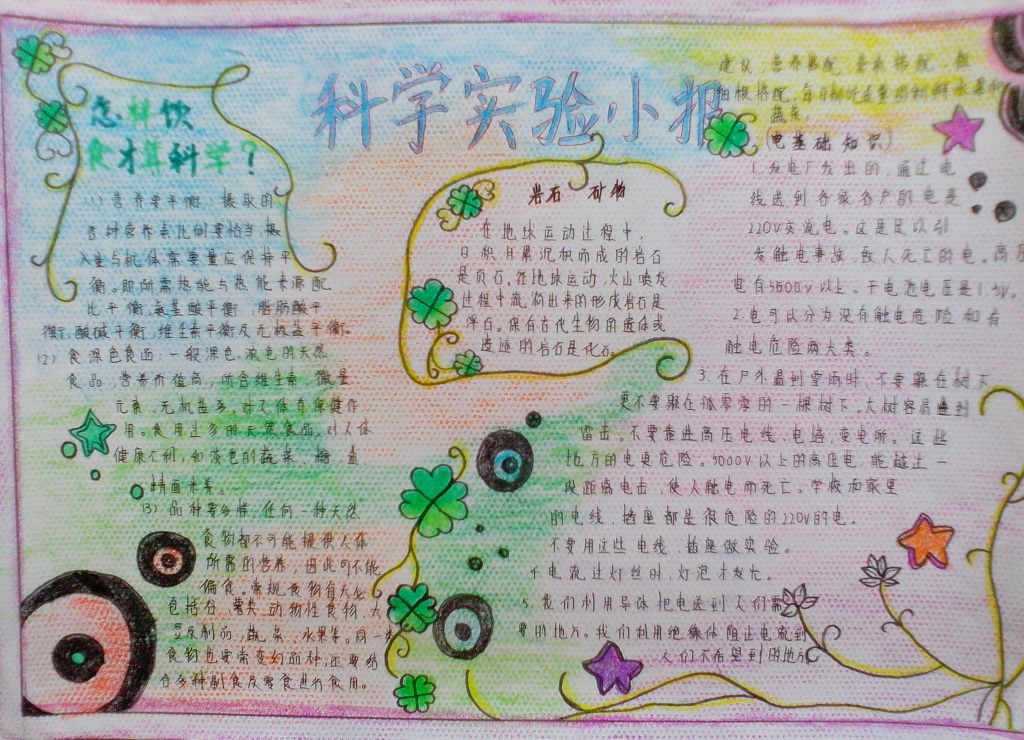 科学实验小报
怎样饮
食才算科学？
(1) 营养要平衡，摄取的
各种营养素比例要恰当，摄
入量与机体需要量应保持平
衡。即所需热能与热能来源配
比平衡，氨基酸平衡，脂肪酸平
衡，酸碱平衡，维生素平衡及无机盐平衡。
(2) 食深色食品：一般深色、浓色的天然
食品，营养价值高，所含维生素、微量
元素、无机盐多，对人体有保健作
用。食用过多的天然食品，对人体
健康不利，如淡色的蔬菜、糖、盐
精面米等。
(3) 品种要多样：任何一种天然
食物都不可能提供人体
所需的营养，因此可不能
偏食。常规食物有大必
包括谷、薯类、动物性食物、大
豆及制品，蔬菜、水果等。同一
食物也要常变幻品种，还要结
合多种副食及零食进行食用。
岩石 矿物
在地球运动过程中，
日积月累沉积而成的岩石
是页石。在地球运动，火山喷发
过程中流淌出来的形成岩石是
浮石。保有古代生物的遗体或
遗迹的岩石是化石。
建议：营养搭配，荤素搭配，粗
细粮搭配，每日都吃适量的新鲜水果和
蔬菜。
(电基础知识)
1.发电厂发出的，通过电
线送到各家各户的电是
220V交流电。这是足以引
发触电事故，致人死亡的电。高压
电有5000V以上。干电池电压是1.5V。
2.电可以分为没有触电危险和有
触电危险两大类。
3.在户外遇到雷雨时，不要躲在树下
更不要躲在孤零零的一棵树下。大树容易遭到
雷击。不要靠进高压电线、电塔，变电所。这些
地方的电更危险。5000V以上的高压电，能越过一
段距离电击，使人触电而死亡。学校和家里
的电线，插座都是很危险的220V的电。
不要用这些电线、插座做实验。
4.电流过灯丝时，灯泡才发光。
5.我们利用导体把电送到人们需
要的地方。我们利用绝缘体阻止电流到
人们不希望到的地方